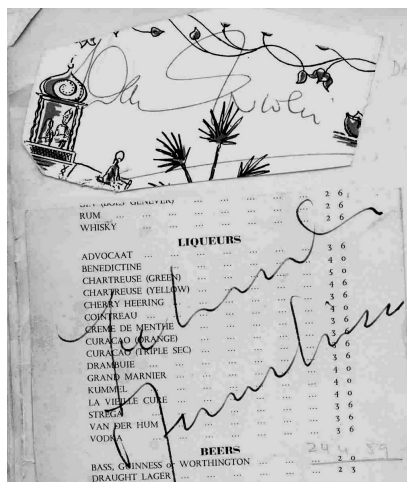 (BOLS GENEVER) ... ... ... ... 2 6
RUM ... ... ... ... ... ... ... 2 6
WHISKY ... ... ... ... ... ... 2 6
LIQUEURS
ADVOCAAT ... ... ... ... ... 3 6
BENEDICTINE ... ... ... ... ... 4 0
CHARTREUSE (GREEN) ... ... ... ... 5 0
CHARTREUSE (YELLOW) ... ... ... 4 6
CHERRY HEERING ... ... ... ... 3 6
COINTREAU ... ... ... ... ... 4 0
CREME DE MENTHE ... ... ... ... 3 6
CURACAO (ORANGE) ... ... ... ... 3 6
CURACAO (TRIPLE SEC) ... ... ... 3 6
DRAMBUIE ... ... ... ... ... 4 0
GRAND MARNIER ... ... ... ... 4 0
KUMMEL ... ... ... ... ... 4 0
LA VIEILLE CURE ... ... ... ... 4 0
STREGA ... ... ... ... ... 3 6
VAN DER HUM ... ... ... ... 3 6
VODKA ... ... ... ... ... 3 6
24 4 59
BEERS
BASS, GUINNESS or WORTHINGTON ... ... 2 0
DRAUGHT LAGER ... ... ... ... 2 3